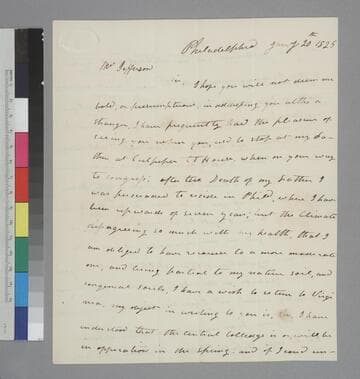 Philadelphia Jany 20th 1825
Mr Jefferson
Sir, I hope you will not deem me
bold, or presumptuous, in addressing you altho a
stranger, I have frequently had the pleasure of
seeing you when you, wd to stop at my Fa-
ther at Culpeper Ct House, when on your way
to congress; after the Death of my Father I
was persuaded to reside in Philda, where I have
been upwards of seven years; but the Climate
disagreeing so much with my health, that I
am obliged to have recourse to a more moderate
one; and being partial to my native soil, and
congenial souls, I have a wish to return to Virgi
nia. my object in writing to you is, I have
understood that the Central Colledge is or will be
in opperation in the Spring; and if I could un-